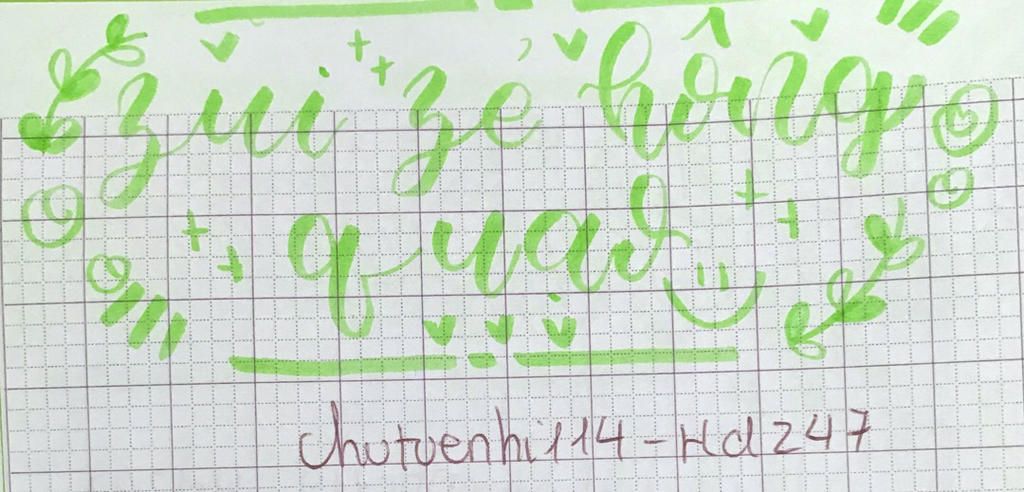 zui zẻ hông
quaơ
chutvenhi114-Hdz247